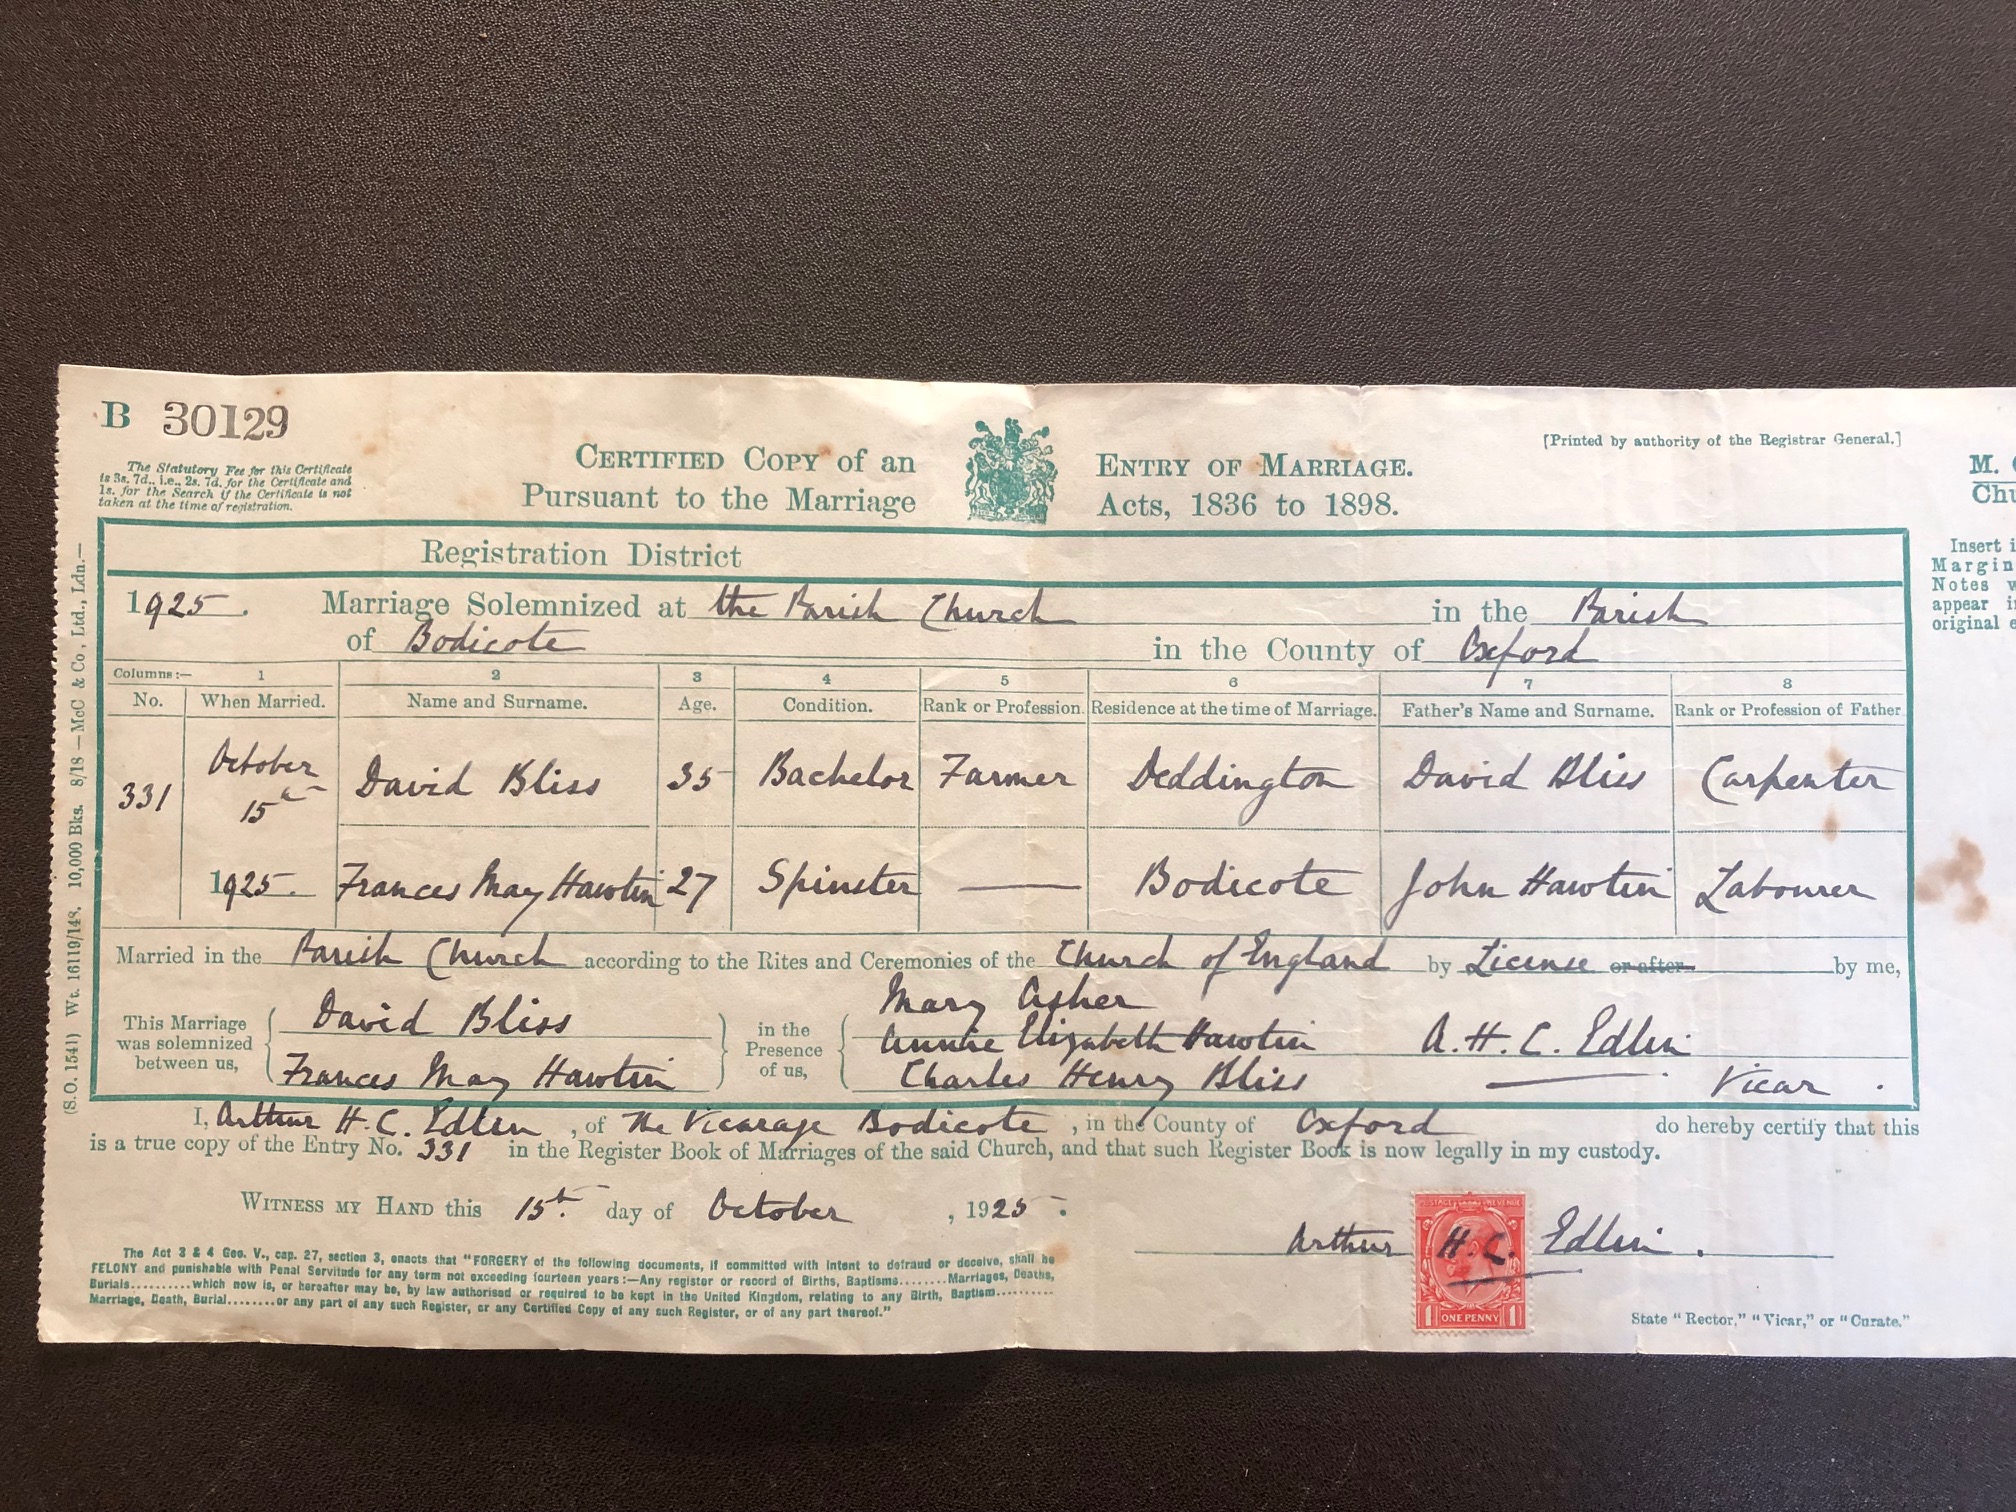 B 30129
The Statutory Fee for this Certificate
is 3s. 7d., i.e., 2s. 7d. for the Certificate and
1s. for the Search if the Certificate is not
taken at the time of registration.
CERTIFIED COPY of an ENTRY OF MARRIAGE.
Pursuant to the Marriage Acts, 1836 to 1898.
[Printed by authority of the Registrar General.]
M.
Insert
Margin
Notes
appear
original
(S.O. 1541) Wt. 16119/148. 10,000 Bks. 8/18 —McC & Co., Ltd., Ldn.—
Registration District
1925. Marriage Solemnized at the Parish Church in the Parish
of Bodicote in the County of Oxford
Columns:— 1 2 3 4 5 6 7 8
No. When Married. Name and Surname. Age. Condition. Rank or Profession. Residence at the time of Marriage. Father's Name and Surname. Rank or Profession of Father
331 October 15th David Bliss 35 Bachelor Farmer Deddington David Bliss Carpenter
1925. Frances May Hawtin 27 Spinster — Bodicote John Hawtin Labourer
Married in the Parish Church according to the Rites and Ceremonies of the Church of England by License or after by me,
This Marriage was solemnized between us,
David Bliss
Frances May Hawtin
in the Presence of us,
Mary Asher
Annie Elizabeth Hawtin
Charles Henry Bliss
A. H. C. Edlin
Vicar.
I, Arthur H. C. Edlin, of The Vicarage Bodicote, in the County of Oxford do hereby certify that this
is a true copy of the Entry No. 331 in the Register Book of Marriages of the said Church, and that such Register Book is now legally in my custody.
WITNESS MY HAND this 15th. day of October, 1925.
Arthur H. C. Edlin.
POSTAGE REVENUE
1 ONE PENNY 1
The Act 3 & 4 Geo. V., cap. 27, section 3, enacts that "FORGERY of the following documents, if committed with intent to defraud or deceive, shall be
FELONY and punishable with Penal Servitude for any term not exceeding fourteen years:—Any register or record of Births, Baptisms........Marriages, Deaths,
Burials..........which now is, or hereafter may be, by law authorised or required to be kept in the United Kingdom, relating to any Birth, Baptism..........
Marriage, Death, Burial........or any part of any such Register, or any Certified Copy of any such Register, or of any part thereof."
State "Rector," "Vicar," or "Curate."